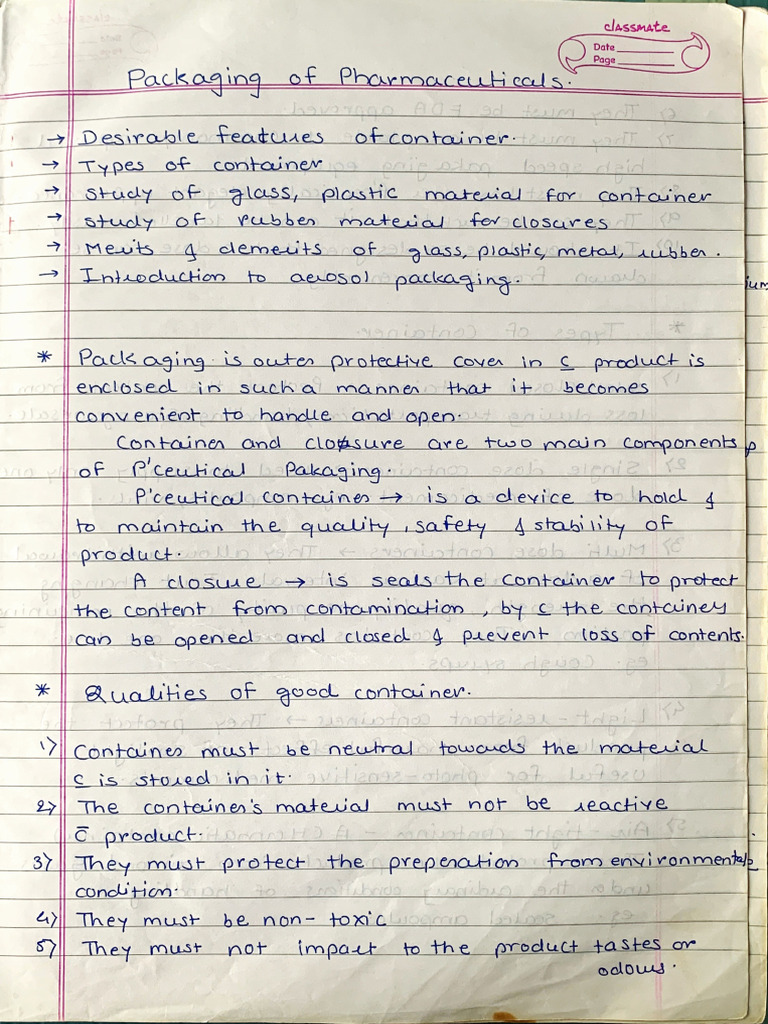 classmate
Date
Page
Packaging of Pharmaceuticals.
→ Desirable features of container.
→ Types of container
→ study of glass, plastic material for container
→ study of rubber material for closures
→ Merits & demerits of glass, plastic, metal, rubber.
→ Introduction to aerosol packaging.
* Packaging is outer protective cover in c̲ product is
enclosed in such a manner that it becomes
convenient to handle and open.
Container and closure are two main components
of P'ceutical Pakaging.
P'ceutical container → is a device to hold &
to maintain the quality, safety & stability of
product.
A closure → is seals the container to protect
the content from contamination, by c̲ the container
can be opened and closed & prevent loss of contents.
* Qualities of good container.
1) Container must be neutral towards the material
c̲ is stored in it.
2) The container's material must not be reactive
c̄ product.
3) They must protect the preperation from environmental
condition.
4) They must be non-toxic
5) They must not impart to the product tastes or
odours.